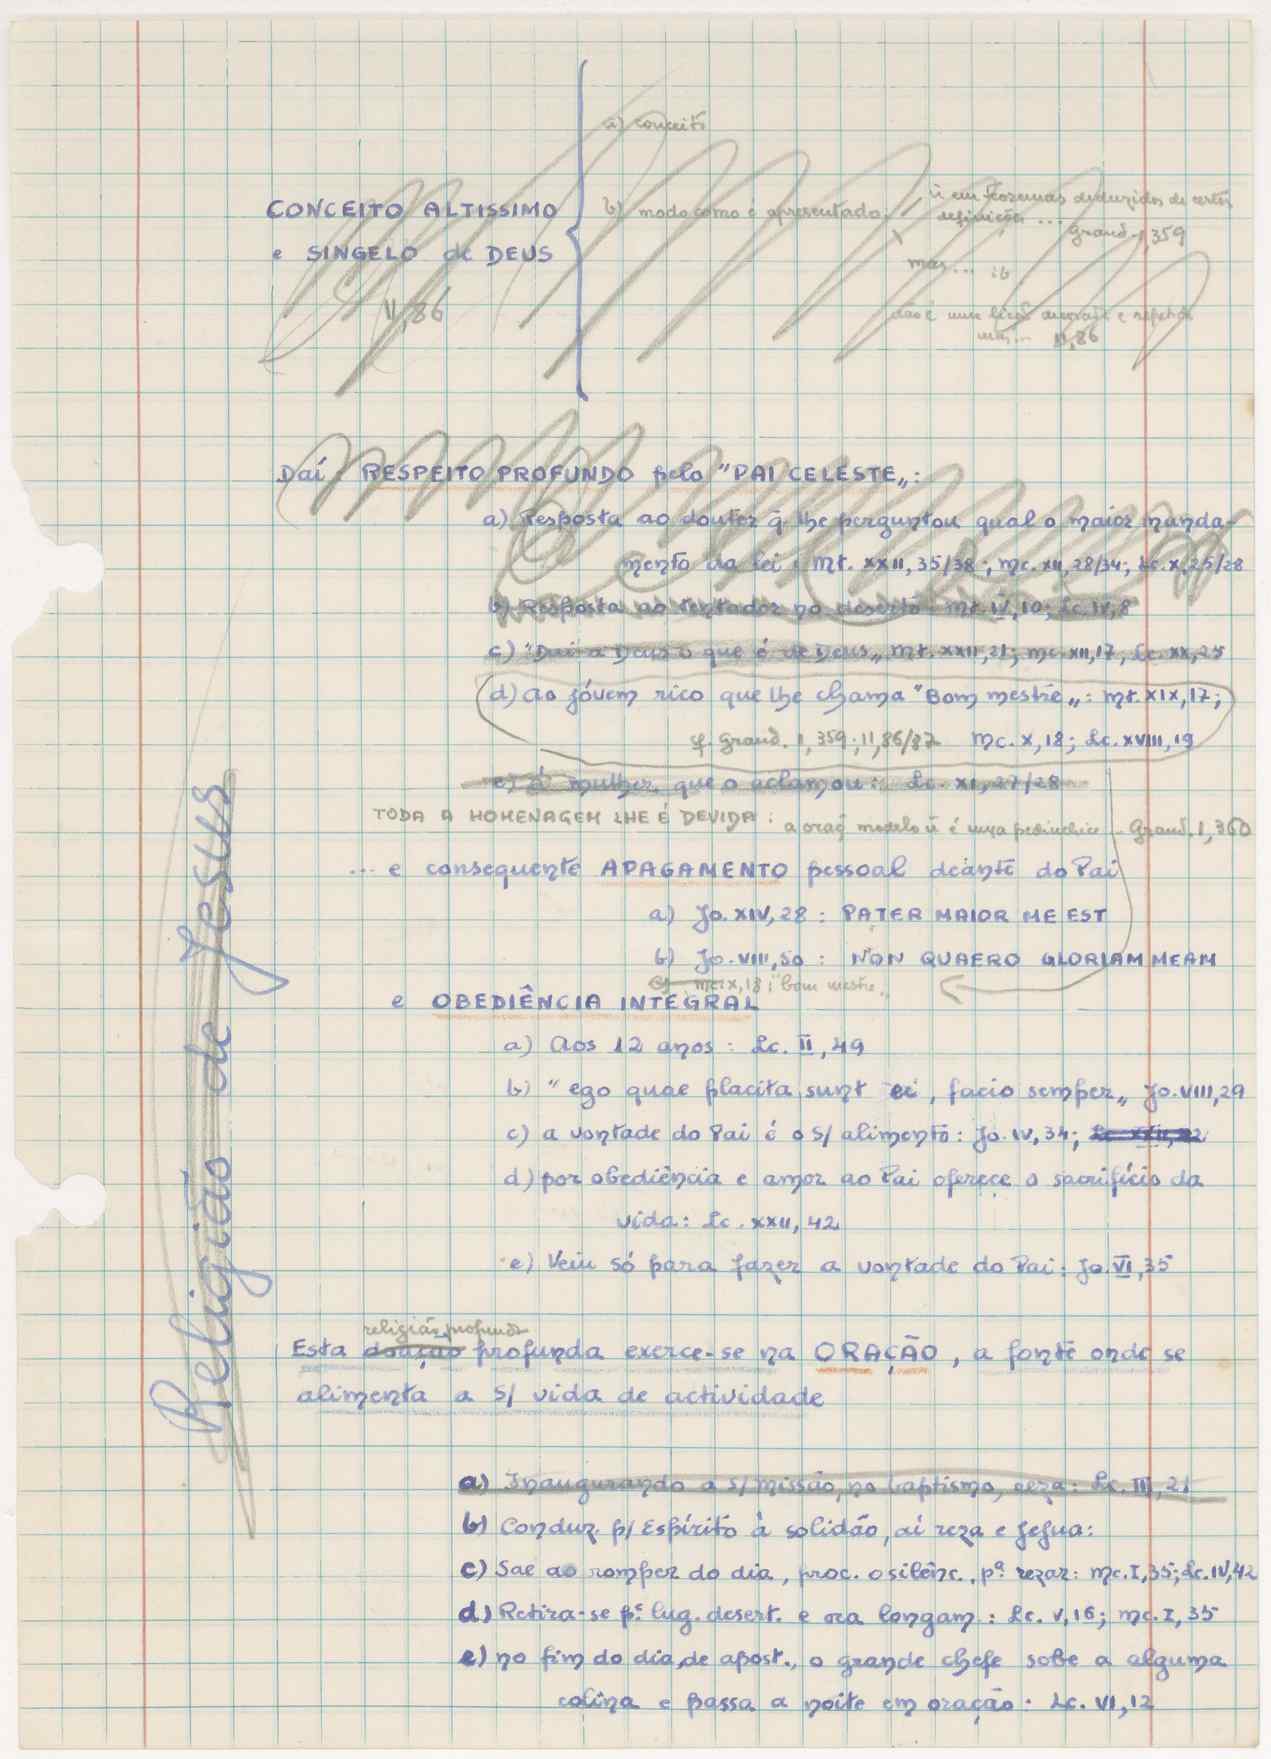 a) conceito
CONCEITO ALTISSIMO
b) modo como é apresentado
ñ em teoremas deduzidos de certas
definições ... Grand. 1,359
e SINGELO de DEUS
mas ...
II,86
não é uma lição decorada e repetida
mas... II,86
Daí RESPEITO PROFUNDO pelo "PAI CELESTE„:
a) Resposta ao doutor q̃ lhe perguntou qual o maior manda-
mento da lei: Mt. XXII,35/38; Mc. XII,28/34; Lc. X,25/28
b) Resposta ao tentador no deserto: Mt. IV,10; Lc. IV,8
c) "Dai a Deus o que é de Deus„ Mt. XXII,21; Mc. XII,17; Lc. XX,25
d) Ao jóvem rico que lhe chama "Bom mestre„: Mt. XIX,17;
cf. Grand. 1,359; II,86/87 Mc. X,18; Lc. XVIII,19
e) À mulher que o aclamou: Lc. XI,27/28
TODA A HOMENAGEM LHE É DEVIDA: a oraç. modelo ñ é uma pedinchice... Grand. 1,360
... e consequente APAGAMENTO pessoal deante do Pai
a) Jo. XIV,28: PATER MAIOR ME EST
b) Jo. VIII,50: NON QUAERO GLORIAM MEAM
c) Mc. X,18: "bom mestre„
e OBEDIÊNCIA INTEGRAL
a) Aos 12 anos: Lc. II,49
b) "ego quae placita sunt ei, facio semper„ Jo. VIII,29
c) a vontade do Pai é o S/ alimento: Jo. IV,34; Lc. XXII,42
d) por obediência e amor ao Pai oferece o sacrifício da
vida: Lc. XXII,42
e) Veiu só para fazer a vontade do Pai: Jo. VI,35
Religião de Jesus
religião profunda
Esta doação profunda exerce-se na ORAÇÃO, a fonte onde se
alimenta a S/ vida de actividade
a) Inaugurando a S/ missão, no baptismo, reza: Lc. III,21
b) Conduz. p/ Espírito à solidão, aí reza e jejua:
c) Sae ao romper do dia, proc. o silênc., pª rezar: Mc. I,35; Lc. IV,42
d) Retira-se pª lug. desert. e ora longam.: Lc. V,16; Mc. I,35
e) no fim do dia de apost., o grande chefe sobe a alguma
colina e passa a noite em oração: Lc. VI,12